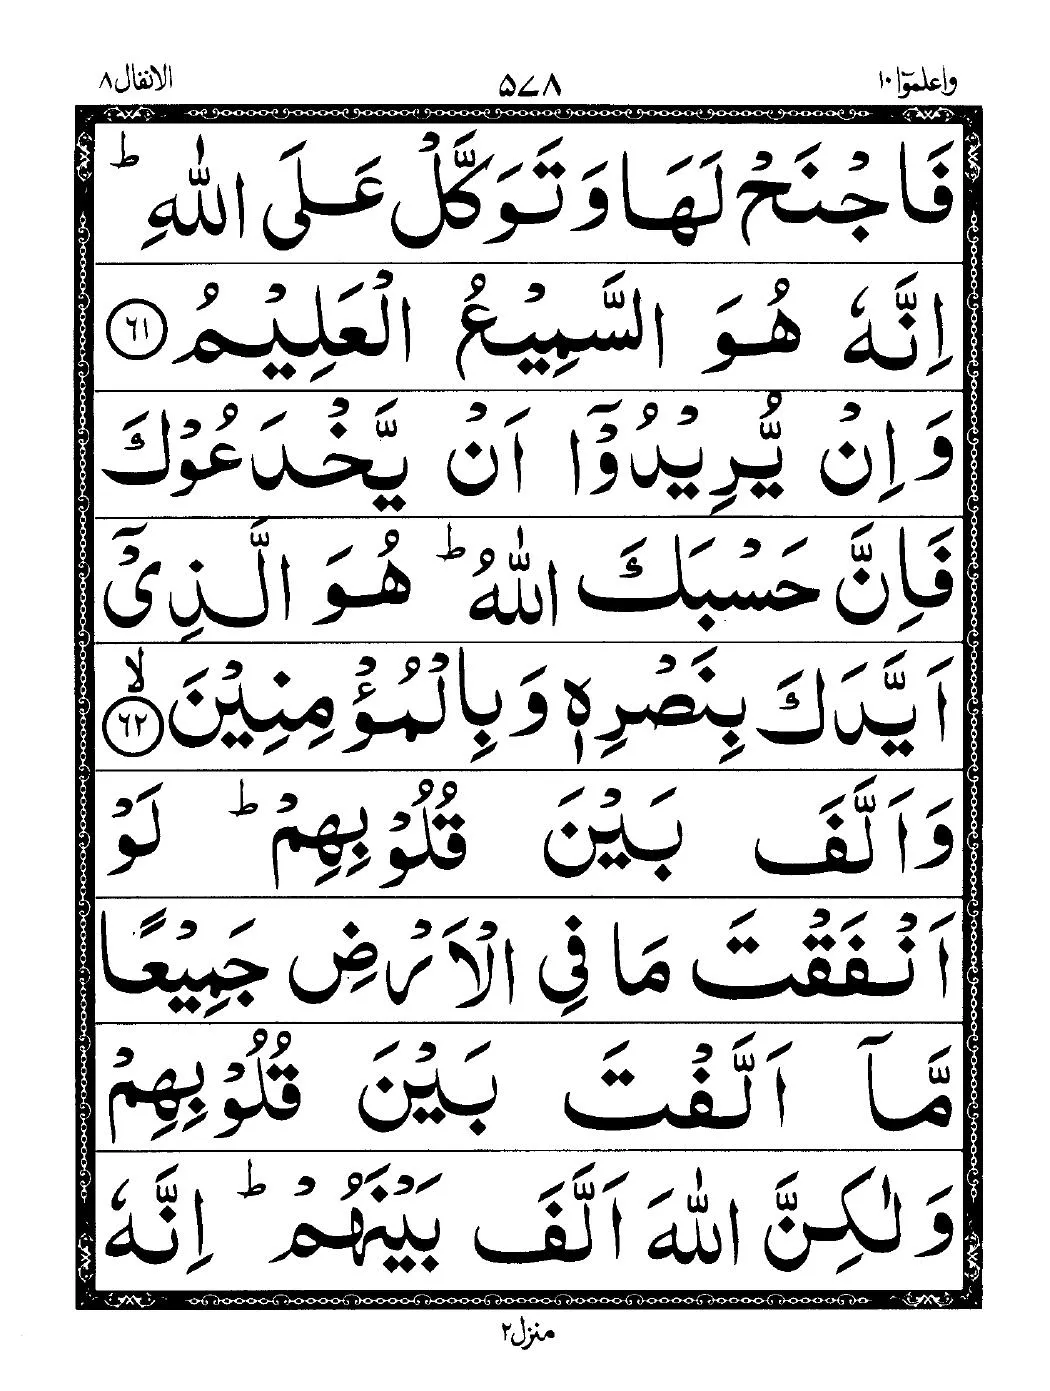 واعلموۤا ۱۰ ۵۷۸ الانفال ۸
فَاجْنَحْ لَهَا وَتَوَكَّلْ عَلَى اللّٰهِ ؕ
اِنَّهٗ هُوَ السَّمِيْعُ الْعَلِيْمُ ﴿۶۱﴾
وَاِنْ يُّرِيْدُوْۤا اَنْ يَّخْدَعُوْكَ
فَاِنَّ حَسْبَكَ اللّٰهُ ؕ هُوَ الَّذِىْۤ
اَيَّدَكَ بِنَصْرِهٖ وَبِالْمُؤْمِنِيْنَ ۙ﴿۶۲﴾
وَاَلَّفَ بَيْنَ قُلُوْبِهِمْ ؕ لَوْ
اَنْفَقْتَ مَا فِى الْاَرْضِ جَمِيْعًا
مَّاۤ اَلَّفْتَ بَيْنَ قُلُوْبِهِمْ
وَلٰكِنَّ اللّٰهَ اَلَّفَ بَيْنَهُمْ ؕ اِنَّهٗ
منزل ۲